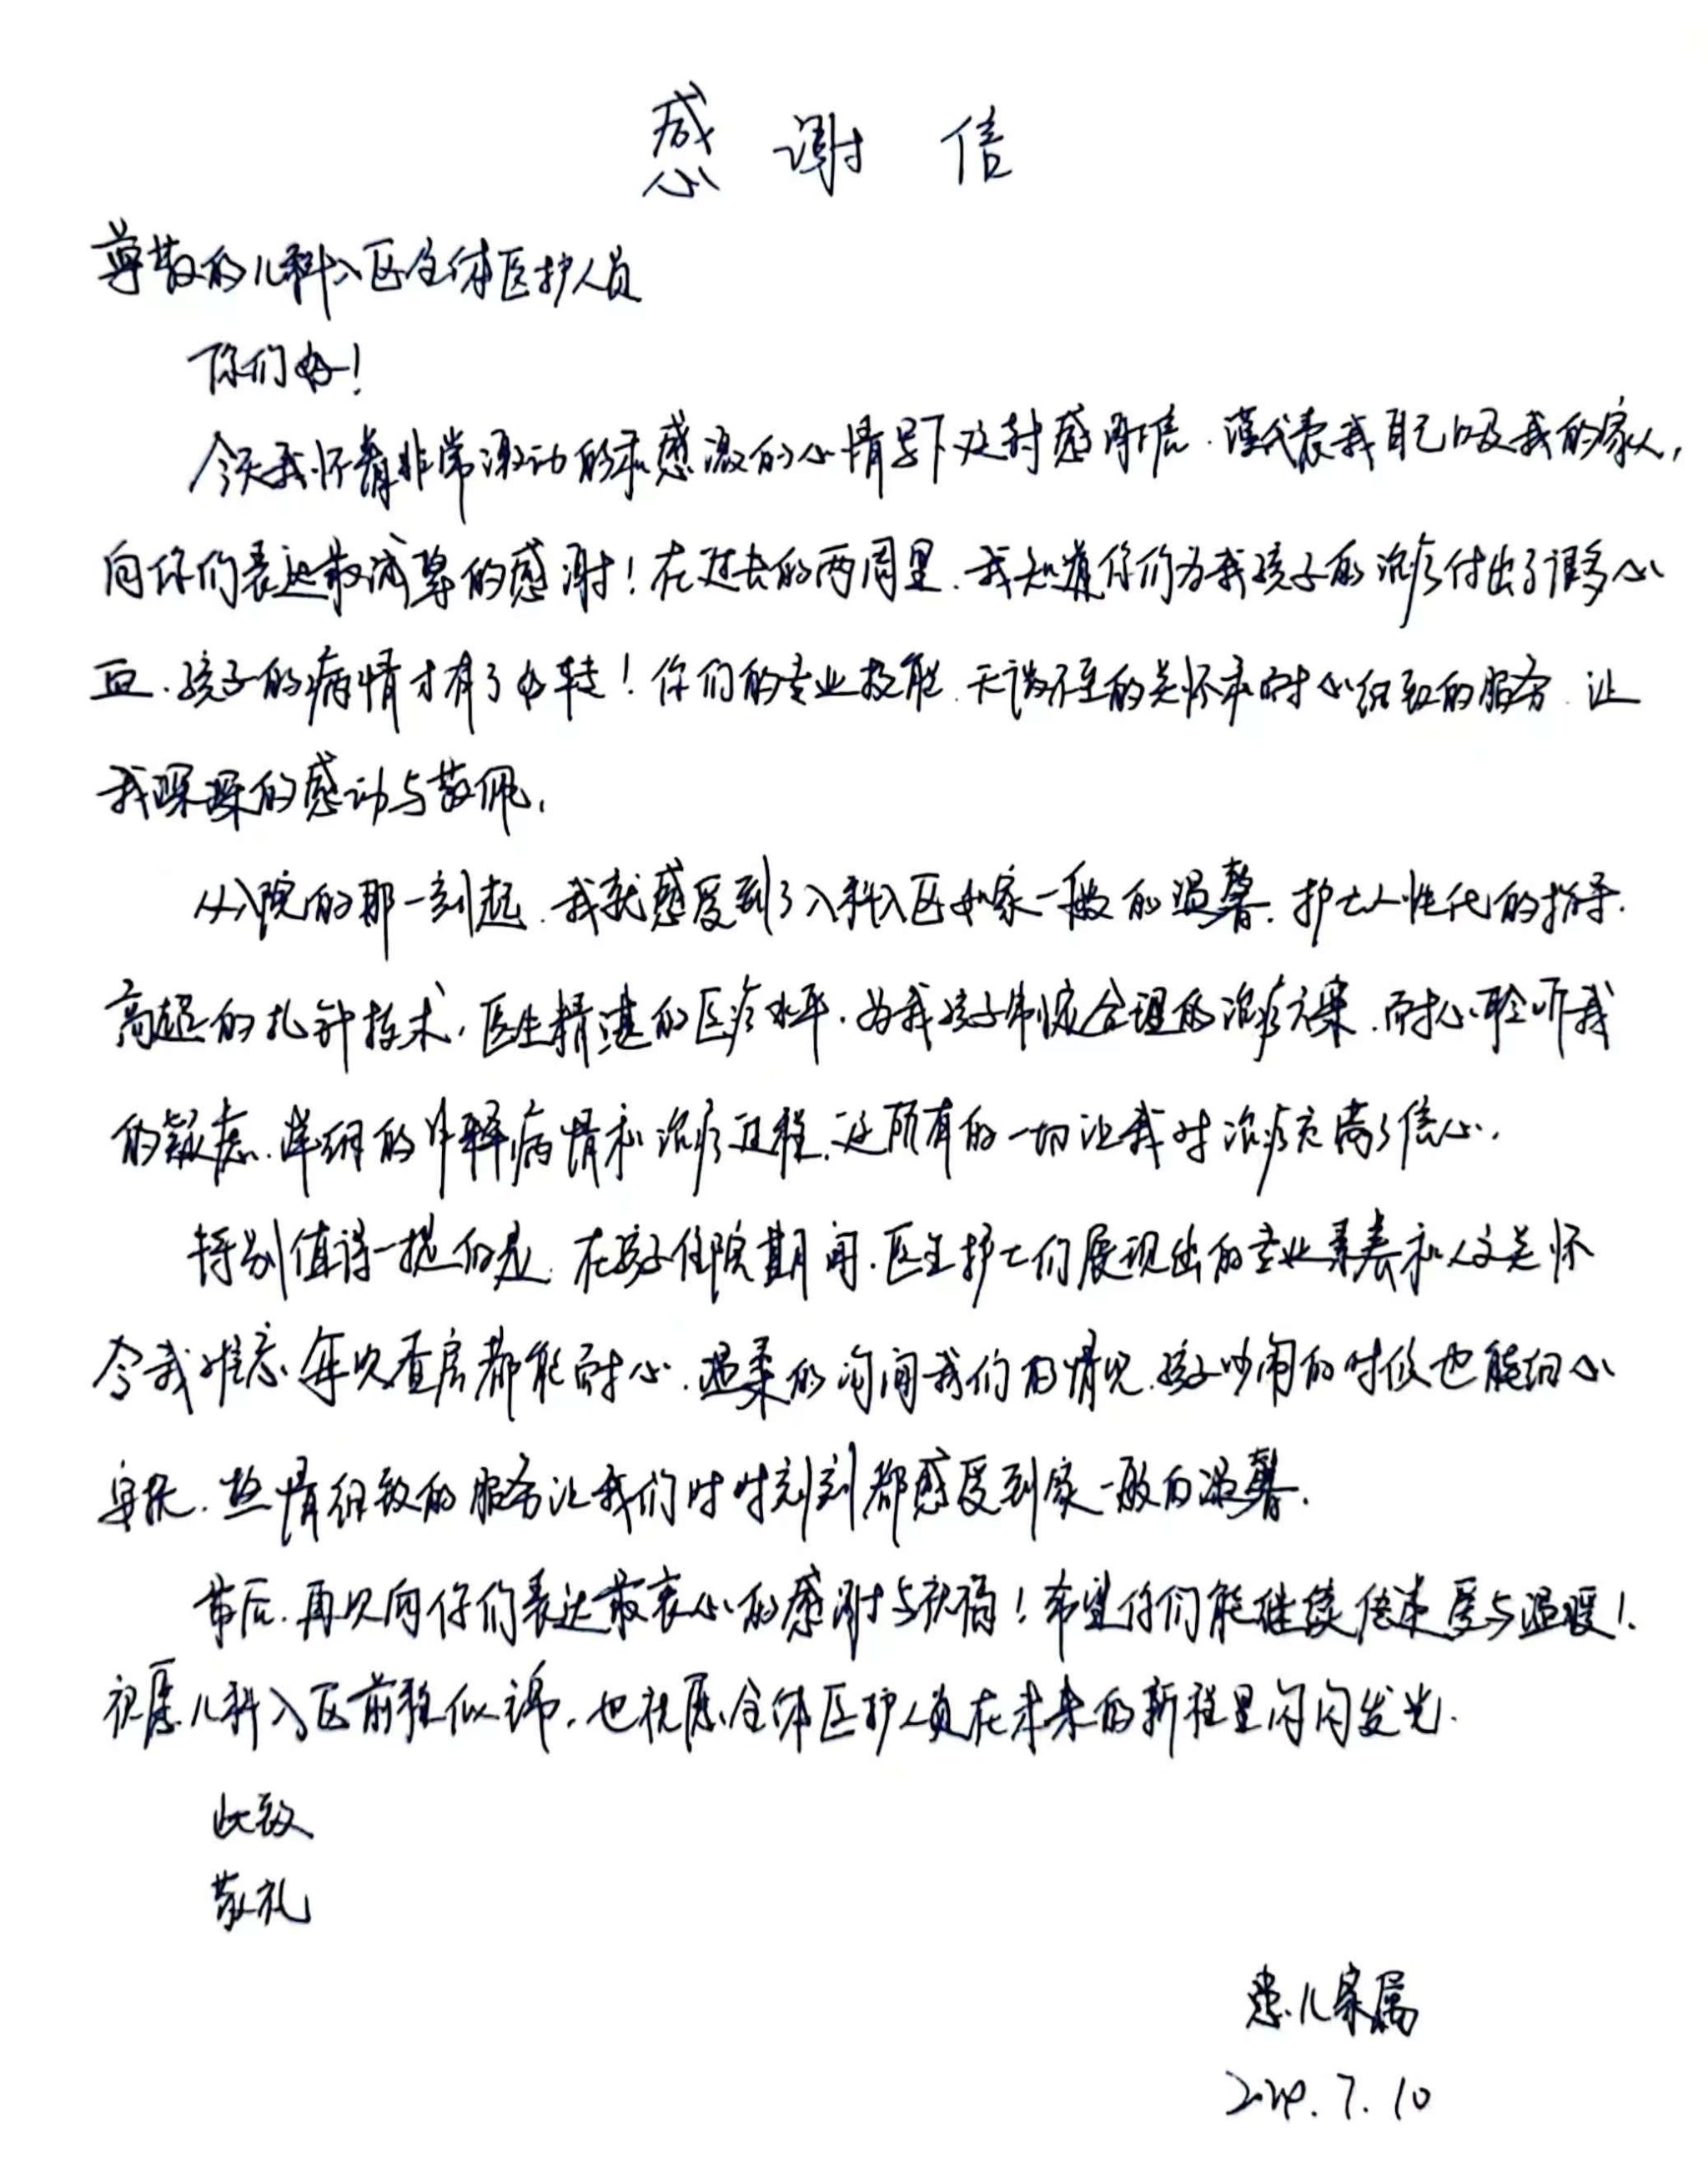 感谢信
尊敬的儿科入区全体医护人员
你们好!
今天我怀着非常激动的和感激的心情写下这封感谢信.谨代表我自己以及我的家人,
向你们表达最诚挚的感谢!在过去的两周里.我知道你们为我孩子的治疗付出了很多心
血.孩子的病情才有了好转!你们的专业技能.无微不至的关怀和耐心细致的服务.让
我深深的感动与敬佩.
从入院的那一刻起.我就感受到了入科入区如家一般的温馨.护士人性化的指导.
高超的扎针技术.医生精湛的医疗水平.为我孩子制定合理的治疗方案.耐心聆听我
的疑虑.详细的解释病情和治疗过程.这所有的一切让我对治疗充满了信心.
特别值得一提的是.在孩子住院期间.医生护士们展现出的专业素养和人文关怀
令我难忘.每次查房都能耐心.温柔的询问我们的情况.孩子吵闹的时候也能细心
安抚.热情细致的服务让我们时时刻刻都感受到家一般的温馨.
最后.再次向你们表达最衷心的感谢与祝福!希望你们能继续传递爱与温暖!
祝愿儿科入区前程似锦.也祝愿全体医护人员在未来的新程里闪闪发光.
此致
敬礼
患儿家属
7.10